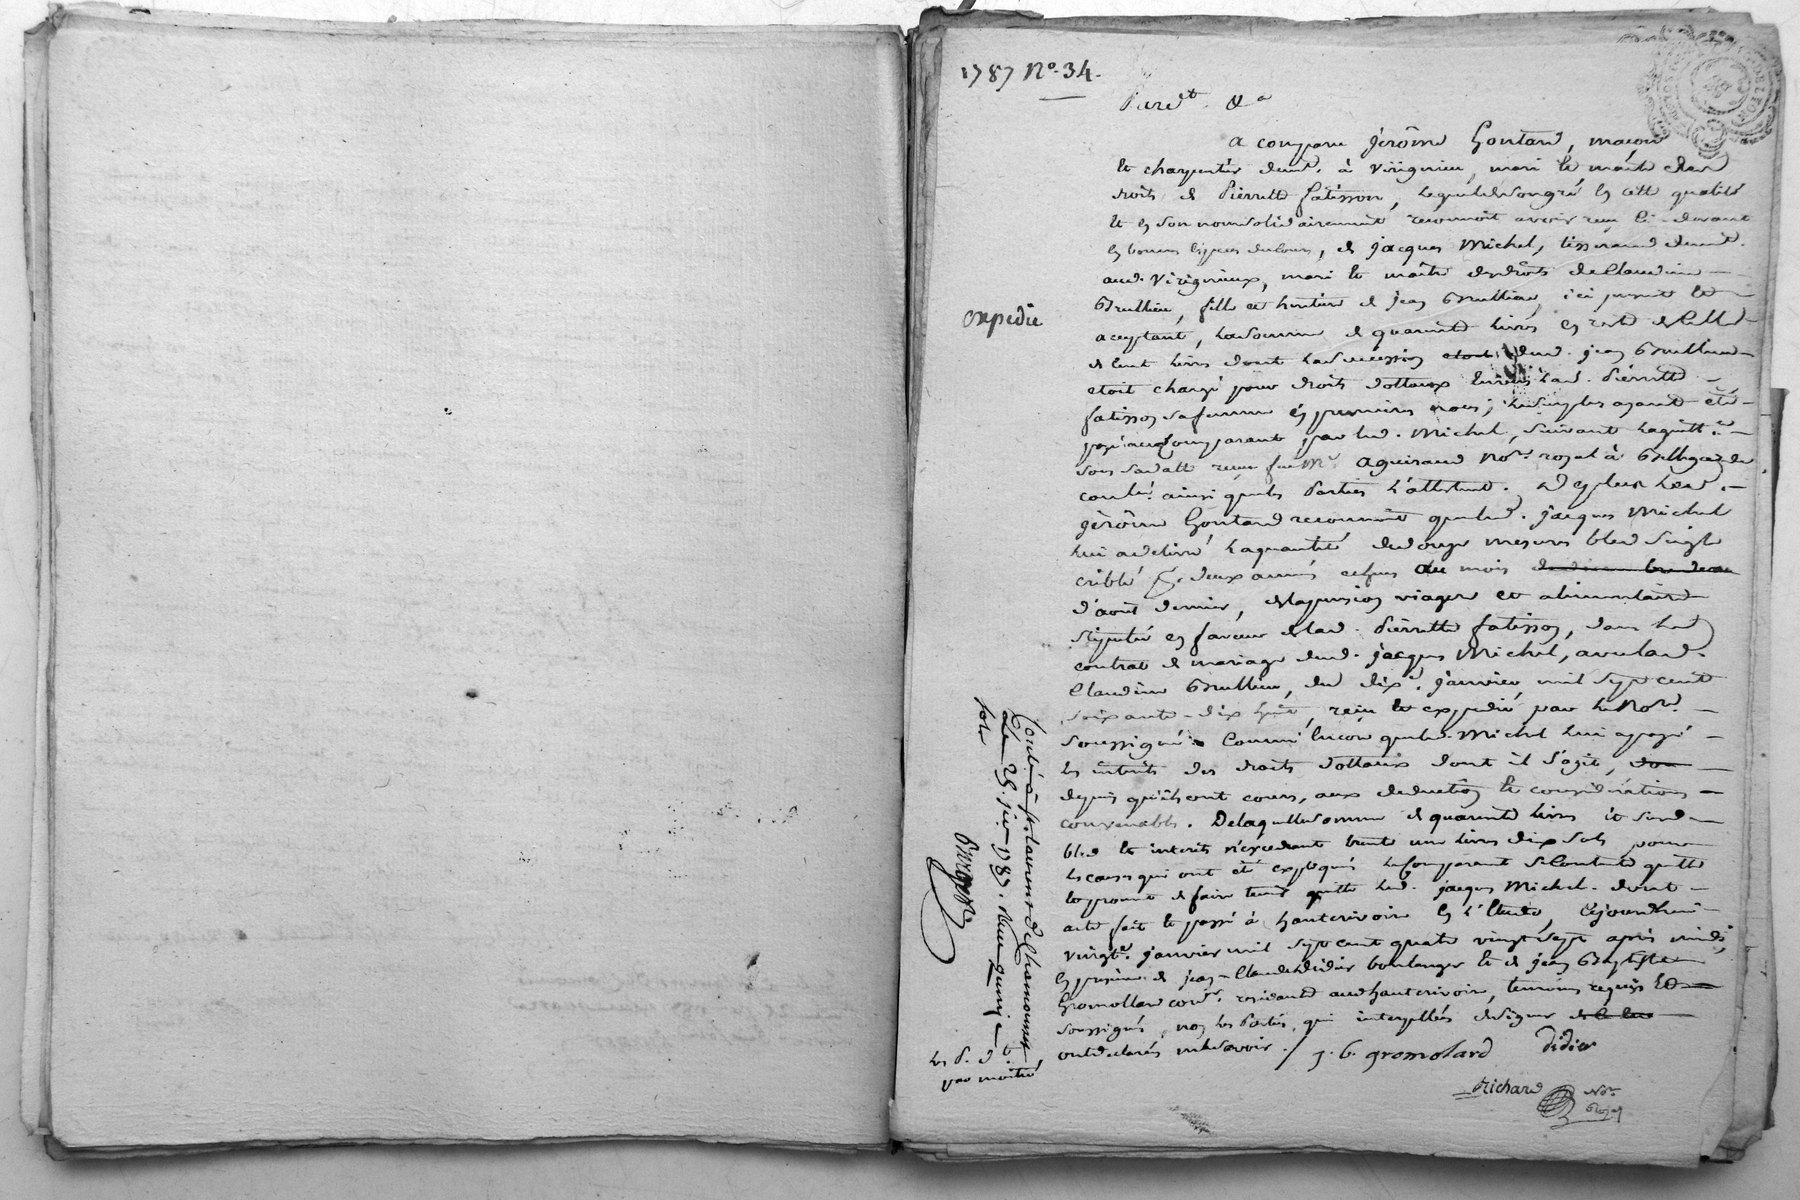 1787 N.o 34.
Pardt. &a
A comparu jérôme Gontard, maçon
et charpentier demt. à Virigneu, mari et maitre des
droits de Pierrette fatisson, lequel de son gré en cette qualité
et en son nom solidairement reconnoit avoir reçu ci-devant
en bonnes espèces du cours, de jacques Michel, tisserand demt.
aud. Virigneux, mari et maitre des droits de Claudine
Brullieu, fille et héritière de jean Brullieu, ici présent et
expedié
aceptant, la somme de quarante livres en reste de celle
de cent livres dont la succession dud. jean Brullieu
etoit chargé pour droits dottaux envers lad. Pierrette
fatisson sa femme en premières noces; le surplus ayant été
payé aud. Comparant par led. Michel, suivant la quittce.
sous sa datte reçue feu Me. Aguiraud Nore. royal à Bellegarde
conlé. ainsi que les Parties l'attestent. led.
jérôme Gontard reconnoit que led. jacques Michel
lui a délivré la quantité de douze mesures bled seigle
criblé pr. deux années echues au mois
d'août dernier, de la pension viagere et alimentaire
stipulée en faveur de lad. Pierrette fatisson, dans le
contrat de mariage dud. jacques Michel, avec lad.
Claudine Brullieu, du dixe. janvier mil sept cent
soixante-dix huit, reçu et expedié par le Nore.
soussigné. Comme encore que led. Michel lui a payé
les intérêts des droits dottaux dont il s'agit,
depuis qu'ils ont cours, aux deductions et considérations
convenables. De laquelle somme de quarante livres et dud.
bled et interets n'excedant trente une livres dix sols pour
les causes qui ont été expliqués le Comparant se Contente quitte
et promet de faire tenir quitte led. jacques Michel. dont
acte fait et passé à hauterivoire en l'Etude, cejourdhui
vingte. janvier mil sept cent quatre vingt sept après midi,
en présence de jean-Claude Didier boulanger et de jean Baptiste
Gromollard cordr. residants aud. hauterivoire, temoins requis et
soussignés, non les Parties, qui interpellées de signer
ont déclarés ne le savoir./. j. b. gromolard Didier
Richard Nore.
Royal
Contlé à St. laurent de Chamousset
Le 25. jer. 1787. Reçu quinze
sols
les d. d.
par moitié